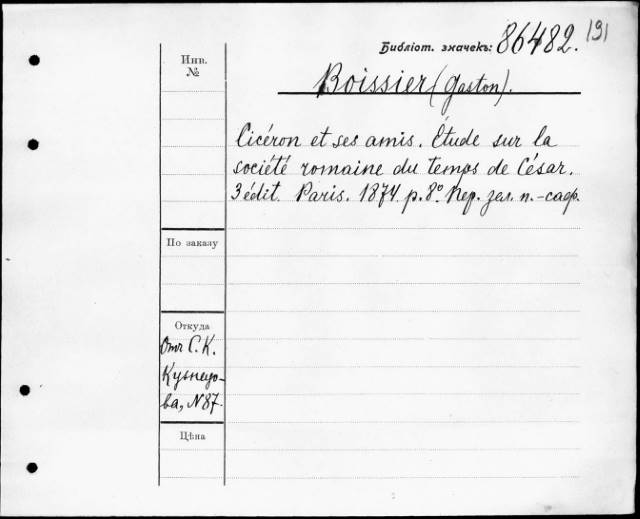 191
Библіот. значекъ: 86482.
Инв.
№
Boissier (Gaston).
Cicéron et ses amis. Étude sur la
société romaine du temps de César.
3 édit. Paris. 1874. p. 8º. Пер. зел. п.-саф.
По заказу
Откуда
Отъ С. К.
Кузнецо-
ва, N87.
Цѣна